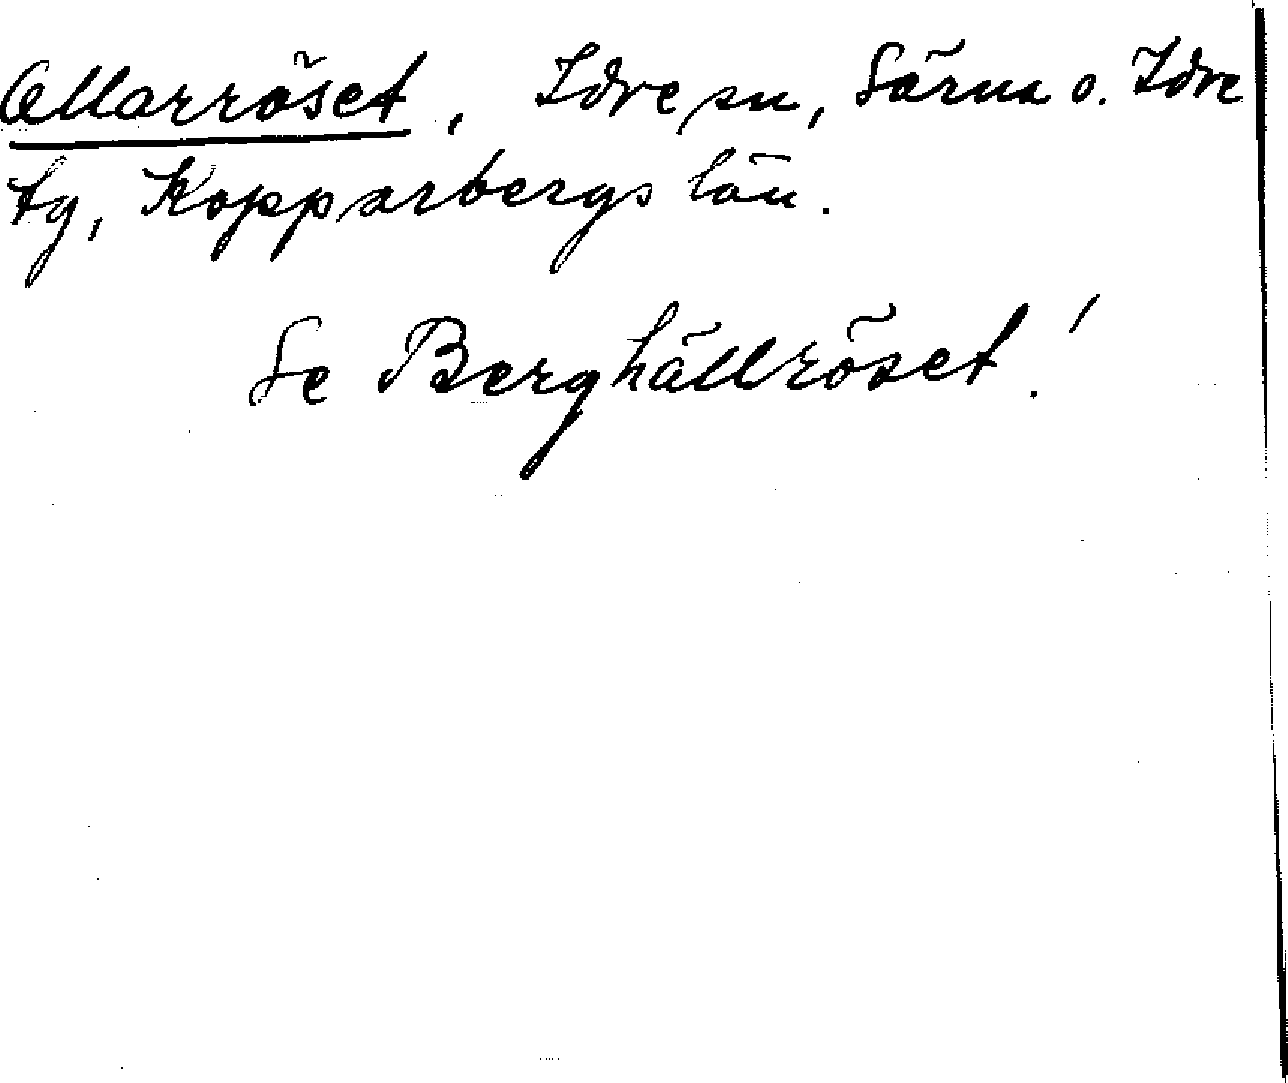 Allarröset, Idre sn, Särna o. Idre
tg, Kopparbergs län.
Se Berghällröset!